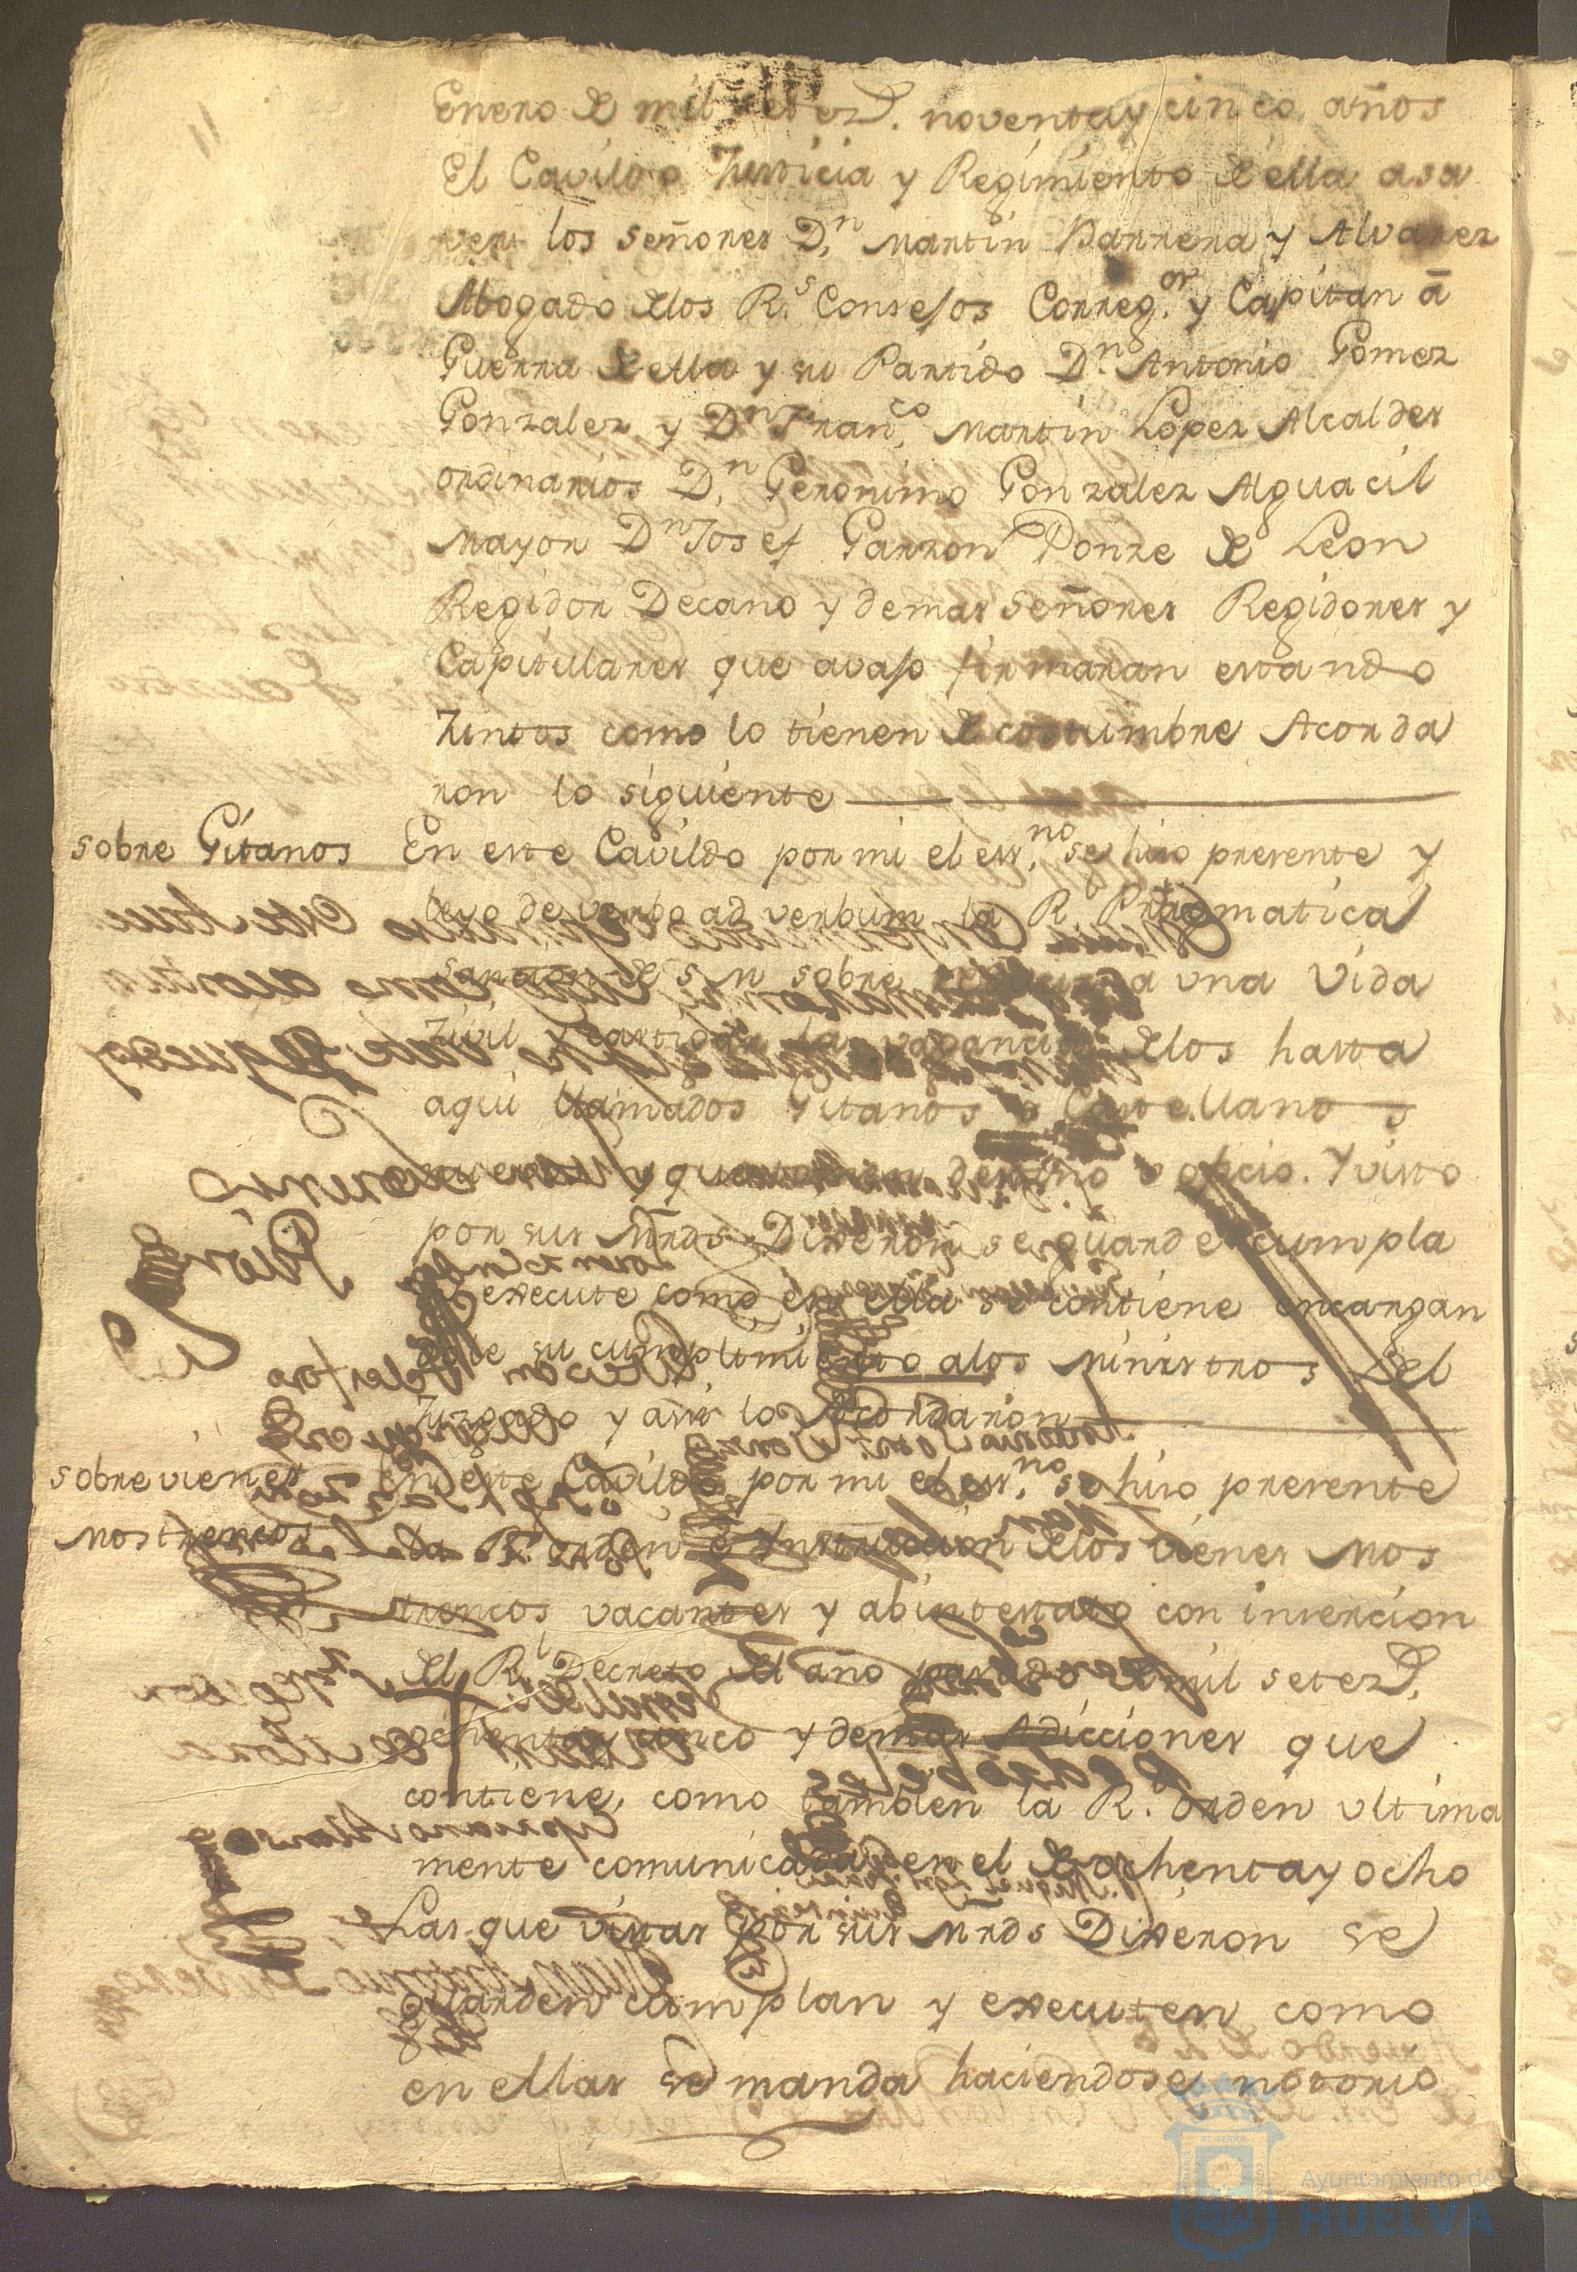 Enero de mil setez.s noventa y cinco años
El Cavildo Justicia y Regimiento de ella asa
ver los señores D.n Martin Barrera y Alvarez
Abogado delos R.s Consejos Correg.or y Capitan á
Guerra de ella y su Partido D.n Antonio Gomez
Gonzalez y D.n Fran.co Martin Lopez Alcaldes
ordinarios D.n Geronimo Gonzalez Alguacil
Mayor D.n Josef Garzon Ponze de Leon
Regidor Decano y demas señores Regidores y
Capitulares que avajo firmaran estando
Juntos como lo tienen de costumbre Acorda
ron lo siguiente
sobre Gitanos
En este Cavildo por mi el ess.no se hizo presente y
leyo de verbo ad verbum la R.l Pragmatica
sancion de S M sobre a una Vida
Zivil y castigar la vagancia delos hasta
aqui llamados Gitanos o Castellanos
nuevos y que destino o oficio. Y visto
por sus Mrds Dixeron se guarde cumpla
y execute como en ella se contiene encargan
dose su cumplimiento alos Ministros del
Juzgado y assi lo Acordaron
sobre vienes
mostrencos
En este Cavildo por mi el ess.no se hizo presente
la R.l orden é Ynstruccion delos vienes Mos
trencos vacantes y abintestato con insercion
del R.l Decreto del año pasado de mil setez.s
ochenta y cinco y demas Adicciones que
contiene, como tambien la R.l orden ultima
mente comunicada en el de ochenta y ocho
Las que vistas por sus Mrds Dixeron se
guarden cumplan y executen como
en ellas se manda haciendose notorio
Ayuntamiento de
HUELVA